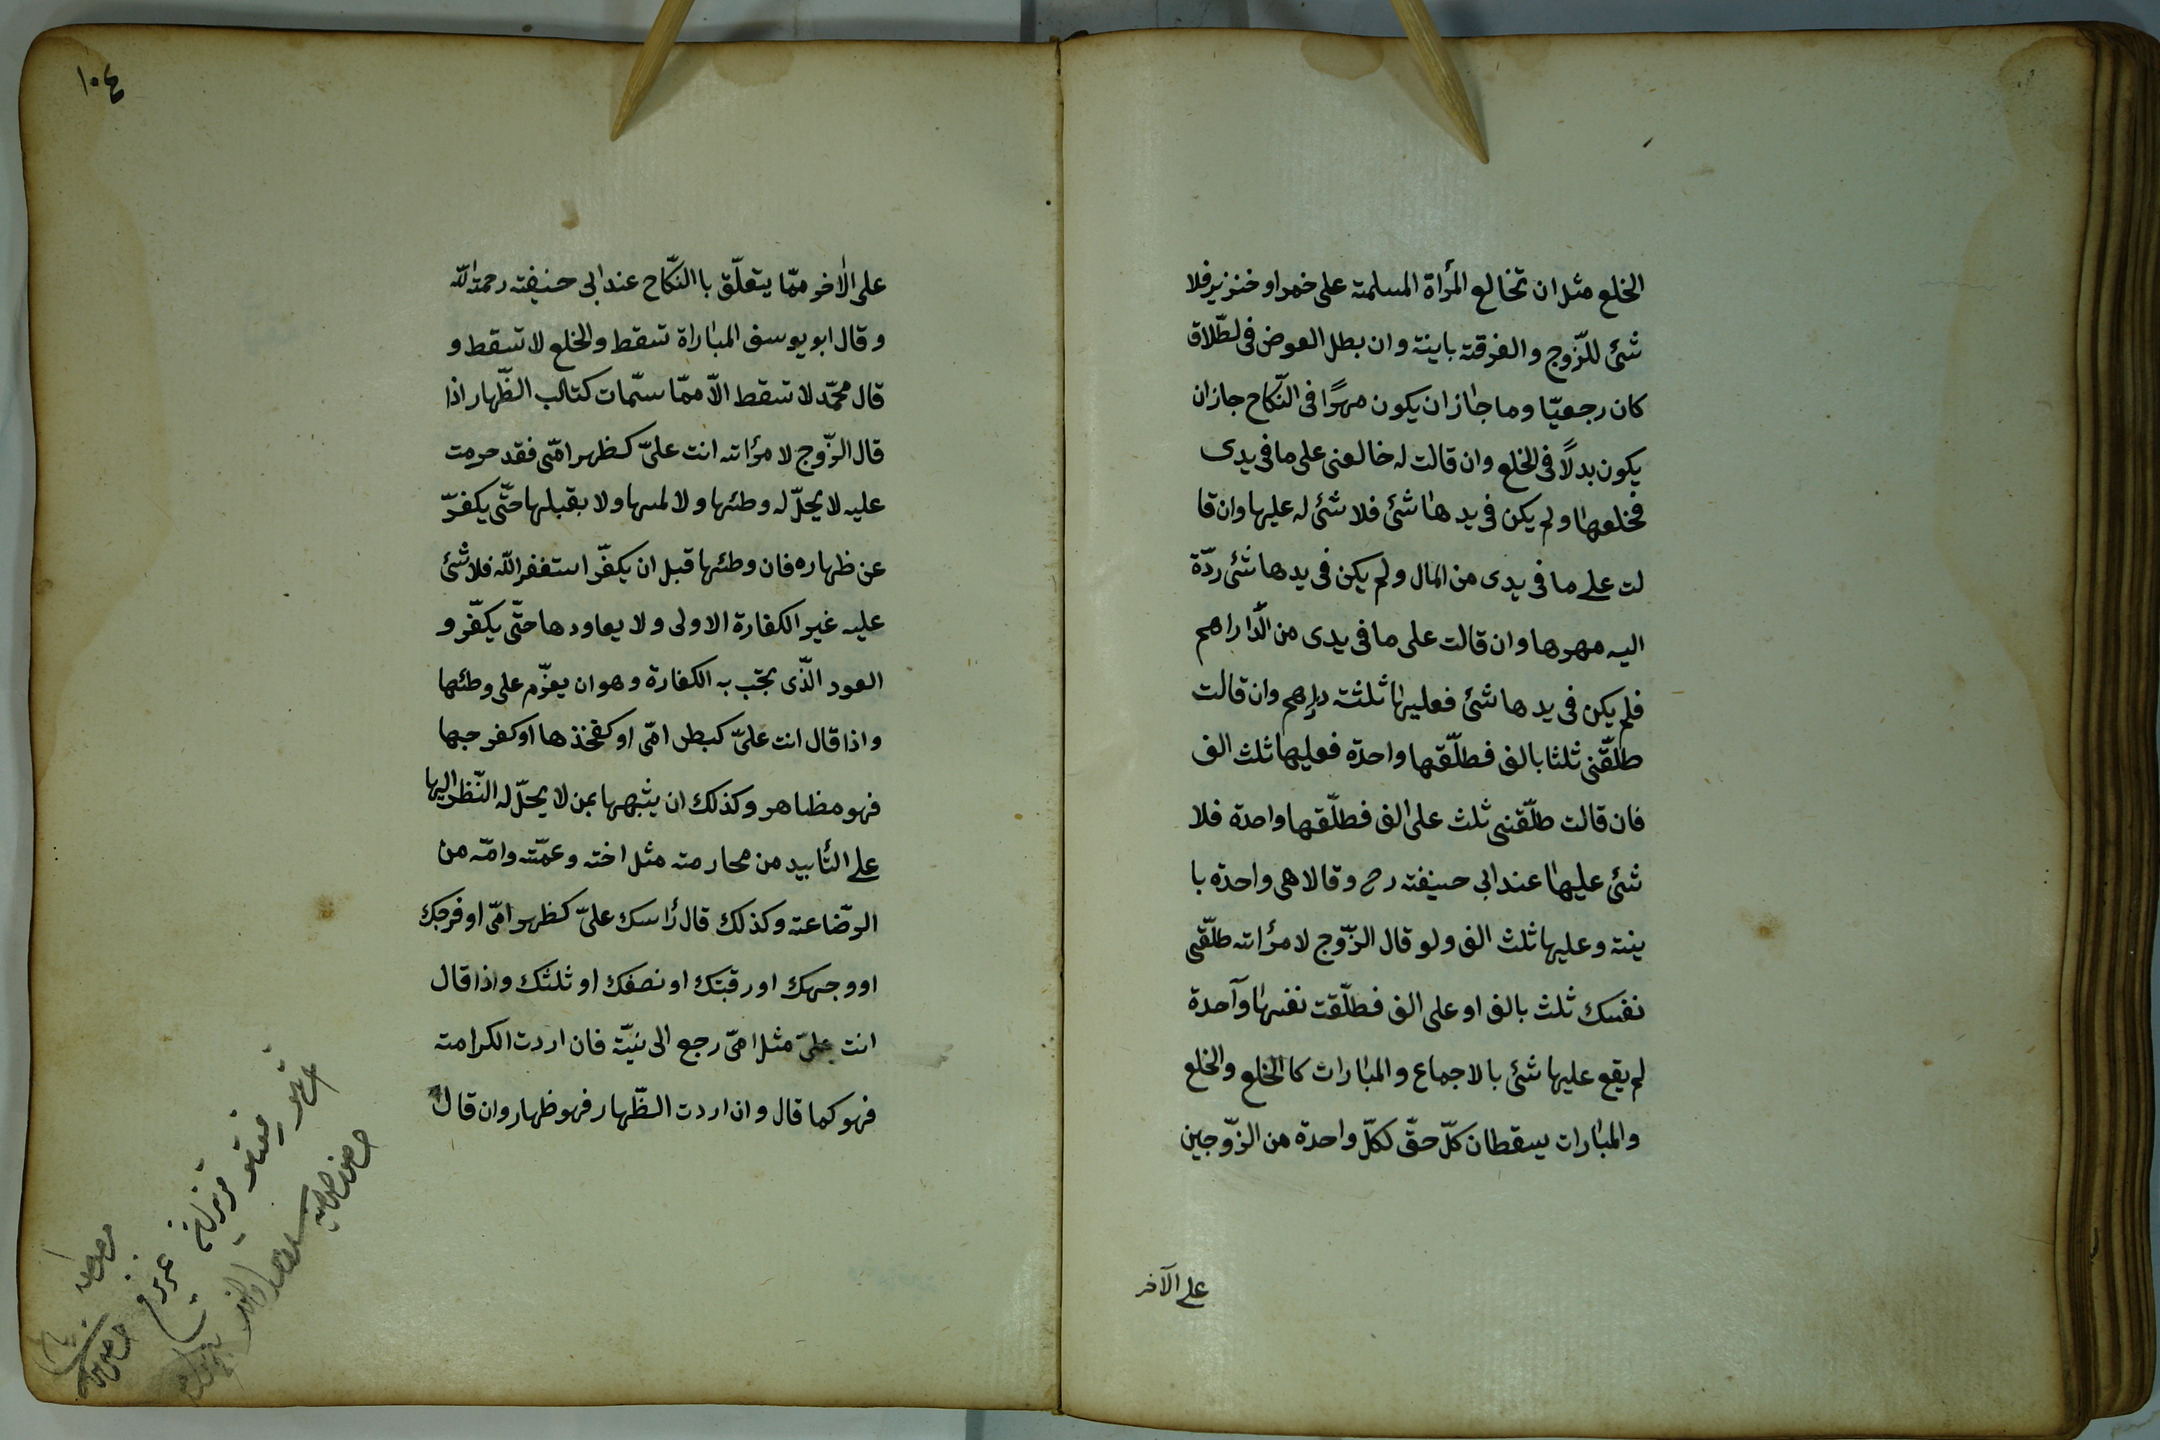 الخلع مثل ان تخالع المرأة المسلمة على خمر او خنزير فلا
شئ للزّوج والفرقة باينة وان بطل العوض فى لطّلاق
كان رجعيّا وما جاز ان يكون مهرًا فى النّكاح جاز ان
يكون بدلًا فى الخلع وان قالت له خالعنى على ما فى يدى
فخلعها ولم يكن فى يدها شئ فلا شئ له عليها وان قا
لت على ما فى يدى من المال ولم يكن فى يدها شئ ردّة
اليه مهرها وان قالت على ما فى يدى من الدّاراهم
فلم يكن فى يدها شئ فعليها ثلثة دراهم وان قالت
طلّقنى ثلثا بالف فطلّقها واحدة فعليها ثلث الف
فان قالت طلّقنى ثلث على الف فطلّقها واحدة فلا
شئ عليها عند ابى حنيفة رح وقالا هى واحدة با
ينة وعليها ثلث الف ولو قال الزّوج لامرأته طلّقى
نفسك ثلث بالف او على الف فطلّقت نفسها وآحدة
لم يقع عليها شئ بالاجماع والمبارات كالخلع والخلع
والمبارات يسقطان كلّ حقّ لكلّ واحدة من الزّوجين
على الآخر
١٠٤
على الآخر ممّا يتعلّق باالنّكاح عند ابى حنيفة رحمة الله
وقال ابو يوسف المباراة تسقط والخلع لا تسقط و
قال محمّد لا تسقط الّا ممّا سمّات كتاب الظّهار اذا
قال الزّوج لامرأته انت علىّ كظهر امّى فقد حرمت
عليه لا يحلّ له وطئها ولا لمسها ولا بقبلها حتّى يكفرّ
عن ظهاره فان وطئها قبل ان يكفّر استغفر الله فلا شئ
عليه غير الكفارة الاولى ولا يعاودها حتّى يكفّر و
العود الّذى تجب به الكفارة وهو ان يعزّم على وطئها
واذا قال انت علىّ كبطن امّى او كفخذها او كفرجها
فهو مظاهر وكذلك ان يشبهها بمن لا يحلّ له النّظر اليها
على التأبيد من محارمته مثل اخته وعمّته وامّه من
الرضّاعة وكذلك قال رأسك علىّ كظهر امّى او فرجك
او وجهك او رقبتك او نصفك او ثلثك واذا قال
انت علىّ مثل امّى رجع الى نيّة فان اردت الكرامة
فهو كما قال وان اردت الظّهار فهو ظهار وان قال